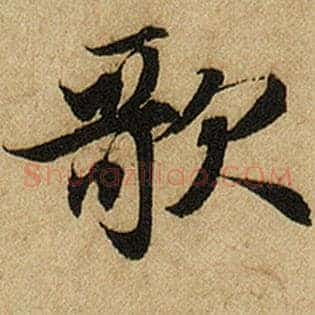 歌
Shufaziliao.com